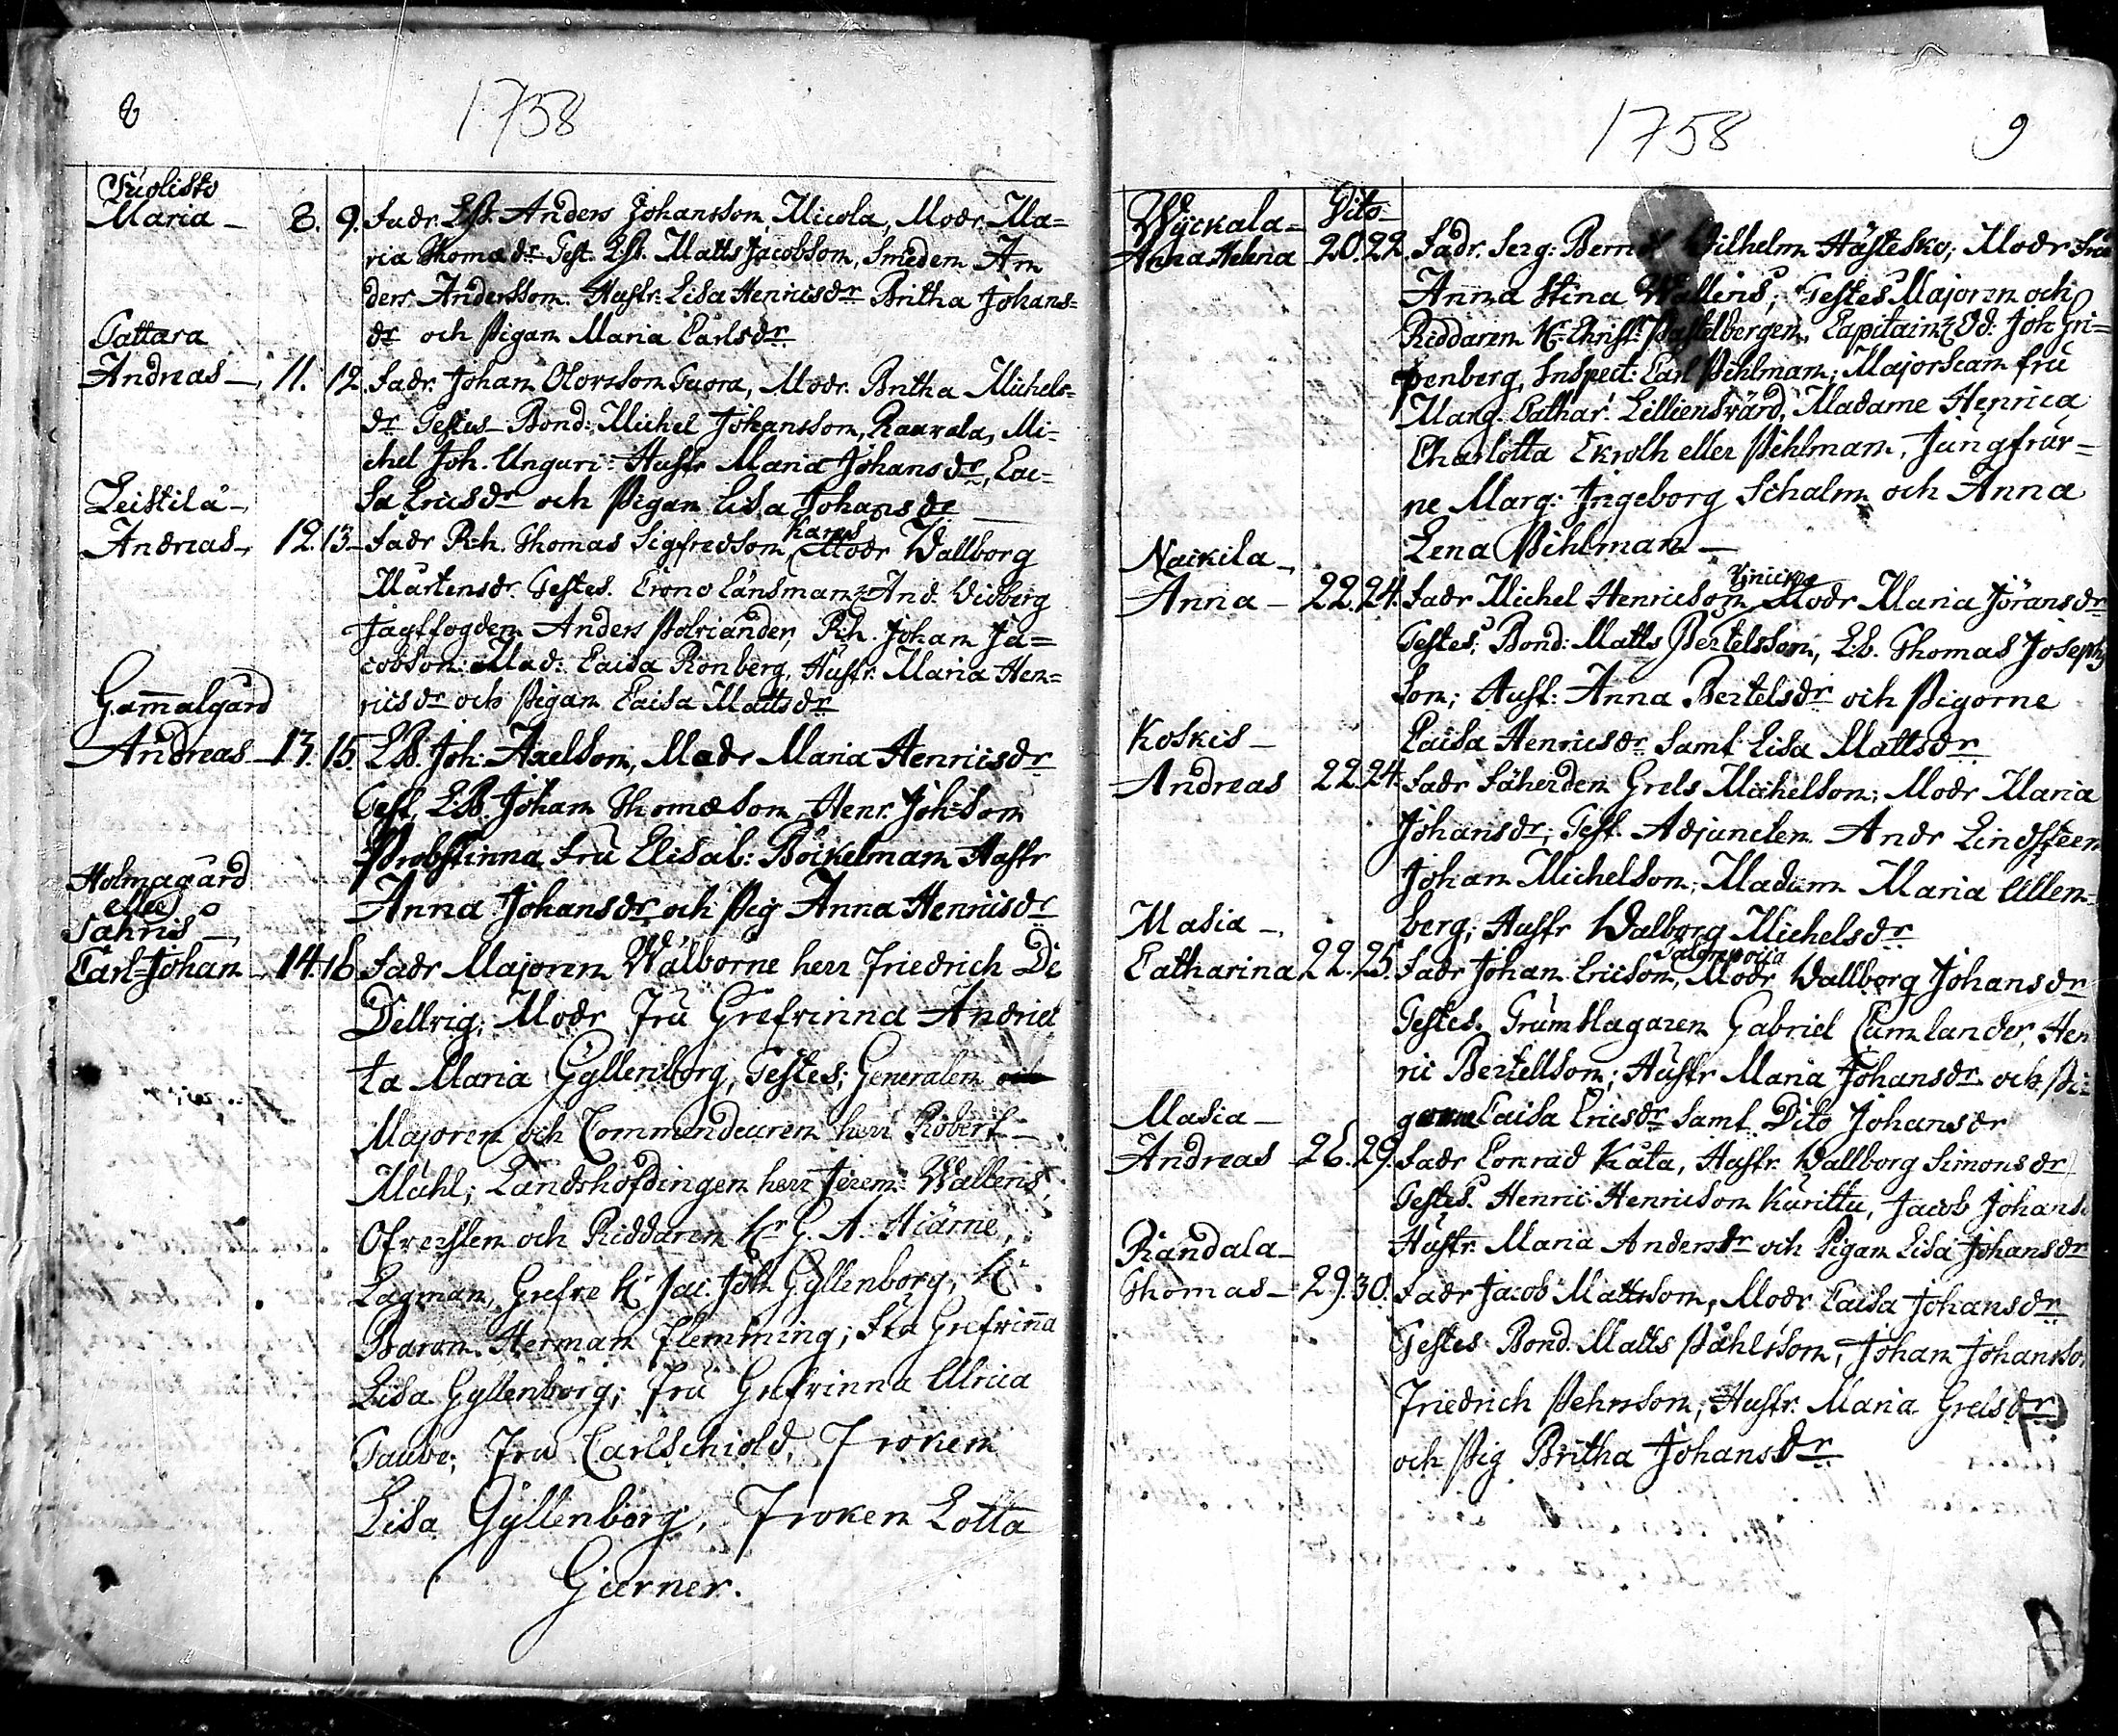 8
1758
Tuolisto
Maria - 8. 9. Fadr. LB. Anders Johansson Micola, Modr. Ma=
ria Thomædr Test. LB. Matts Jacobsson, Smeden An
ders Andersson. Hustr. Lisa Henricsdr Britha Johans=
dr och Pigan Maria Carlsdr
Tattara
Andreas - 11. 12. Fadr. Johan Olofsson Tuora, Modr. Britha Michels=
dr Testes Bond: Michel Johansson, Raurala, Mi=
chel Joh. Unguri: Hustr Maria Johansdr, Cai=
sa Ericsdr och Pigan Lisa Johansdr
Leistilä -
Andreas - 12. 13. Fadr Rh. Thomas Sigfredson Karus Modr Wallborg
Mårtensdr. Testes. Crono Länsman And. Widberg
Jagtfogden Anders Polviander, Rh. Johan Ja=
cobson: Mad: Caisa Rönberg, Hustr. Maria Hen=
ricsdr och Pigan Caisa Mattsdr
Gammalgård
Andreas - 13. 15. LB. Joh: Axelson, Modr Maria Henricsdr
Test. LB. Johan Thomæson, Henr. Joh:son
Probstinna Fru Elisab: Böckelman Hustr
Anna Johansdr och Pig Anna Henricsdr
Holmagård
eller
Sahris -
Carl=Johan - 14. 16. Fadr Majoren Wälborne herr Friedrich Di
Dellvig, Modr Fru Grefvinna Andriet
ta Maria Gyllenborg, Testes; Generalen
Majoren och Commendeuren herr Robert
Muhl; Landshöfdingen herr Jerem: Wallens;
Ofversten och Riddaren Hr G. A. Hiärne,
Lagman, Grefve Hr Jac: Joh Gyllenborg, Hr.
Baron Herman Flemming; Fru Grefvinna
Lisa Gyllenborg; Fru Grefvinna Ulrica
Taube; Fru Carlschiold, Froken
Lisa Gyllenborg, Froken Lotta
Giärner.
1758
9
Wyckala - Dito
Anna Helena 20. 22. Fadr. Serg: Bernd Wilhelm Hästesko; Modr Fru
Anna Stina Wallens; Testes Majoren och
Riddaren Hr Christ: Pastelbergen, Capitain Od: Joh Gri=
penberg, Inspect: Carl Pihlman; Majorscan fru
Marg. Cathar: Lilliensvärd, Madame Henrica
Charlotta Ekroth eller Pihlman, Jungfrur=
ne Marg: Ingeborg Schalm och Anna
Lena Pihlman -
Naikila -
Anna - 22. 24. Fadr Michel Henricson Yrnicke Modr Maria Jöransdr
Testes; Bond: Matts Bertelsson, LB. Thomas Josephs
son; Hust: Anna Bertelsdr och Pigorne
Caisa Henricsdr samt Lisa Mattsdr
Koskis -
Andreas 22. 24. Fadr Fäherden Grels Michelson; Modr Maria
Johansdr; Test. Adjuncten Andr Lindsteen
Johan Michelson; Madamn Maria Ullen=
berg; Hustr Walborg Michelsdr
Masia -
Catharina 22. 25. Fadr Johan Ericson, Modr Wallborg Johansdr
Testes. Trumslagaren Gabriel Cumlander, Hen
ric Bertellson; Hustr Maria Johansdr och Pi=
gorna Caisa Ericsdr samt Dito Johansdr
Masia -
Andreas 26. 29. Fadr Conrad Kåta, Hustr. Wallborg Simonsdr
Testes. Henric Henricson Kurittu, Jacob Johans
Hustr. Maria Andersdr och Pigan Lisa Johansdr
Randala -
Thomas - 29. 30. Fadr Jacob Mattsson, Modr Caisa Johansdr
Testes Bond. Matts Påhlsson, Johan Johansson
Friedrich Pehrsson; Hustr. Maria Grelsdr
och Pig Britha Johansdr